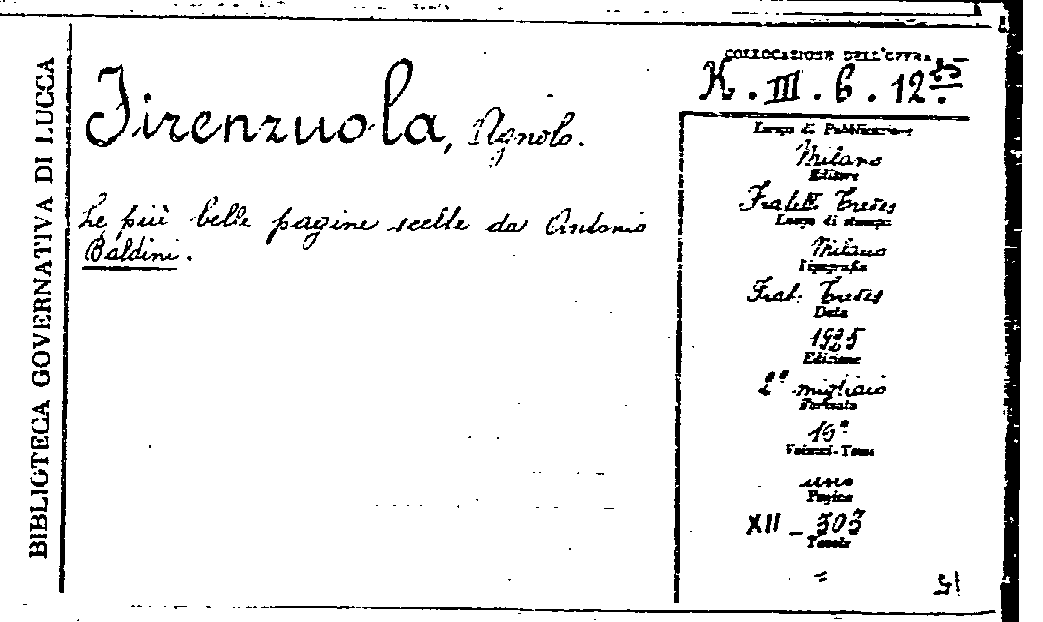 BIBLIOTECA GOVERNATIVA DI LUCCA
Firenzuola, Agnolo.
Le più belle pagine scelte da Antonio
Baldini.
COLLOCAZIONE DELL'OPERA
K. III. 6. 12
Luogo di Pubblicazione
Milano
Editore
Fratelli Treves
Luogo di stampa
Milano
Tipografia
Frat. Treves
Data
1925
Edizione
2° migliaio
Formato
16°
Volumi-Tomi
uno
Pagine
XII - 303
Tavole
=